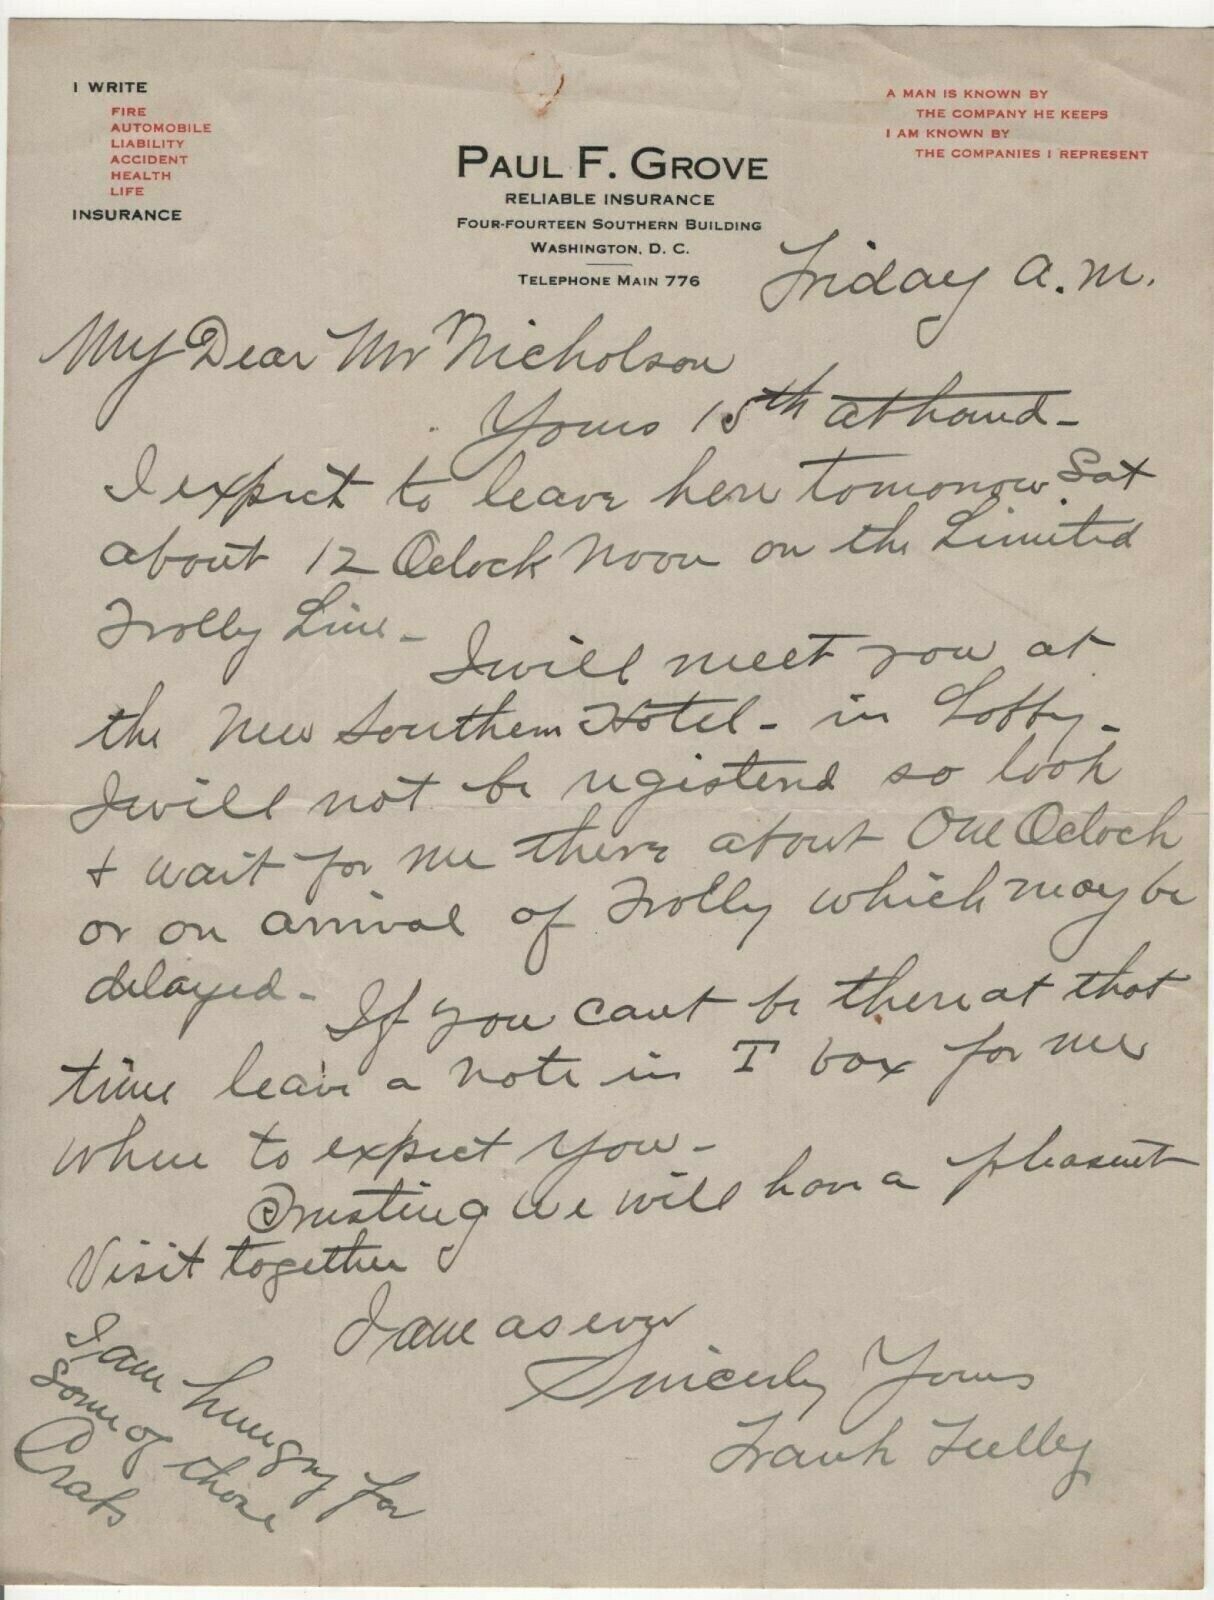 I WRITE
FIRE
AUTOMOBILE
LIABILITY
ACCIDENT
HEALTH
LIFE
INSURANCE
A MAN IS KNOWN BY
THE COMPANY HE KEEPS
I AM KNOWN BY
THE COMPANIES I REPRESENT
PAUL F. GROVE
RELIABLE INSURANCE
FOUR-FOURTEEN SOUTHERN BUILDING
WASHINGTON, D. C.
TELEPHONE MAIN 776
Friday a.m.
My Dear Mr Nicholson
Yours 15th at hand -
I expect to leave here tomorrow Sat
about 12 Oclock Noon on the Limited
Trolly Line -
I will meet you at
the New Southern Hotel - in Lobby -
I will not be registered so look
+ wait for me there about One Oclock
or on arrival of Trolly which may be
delayed -
If you cant be there at that
time leave a note in T box for me
when to expect you -
Trusting we will have a pleasant
Visit together
I am as ever
Sincerely Yours
Frank
I am hungry for
some of those
Crabs